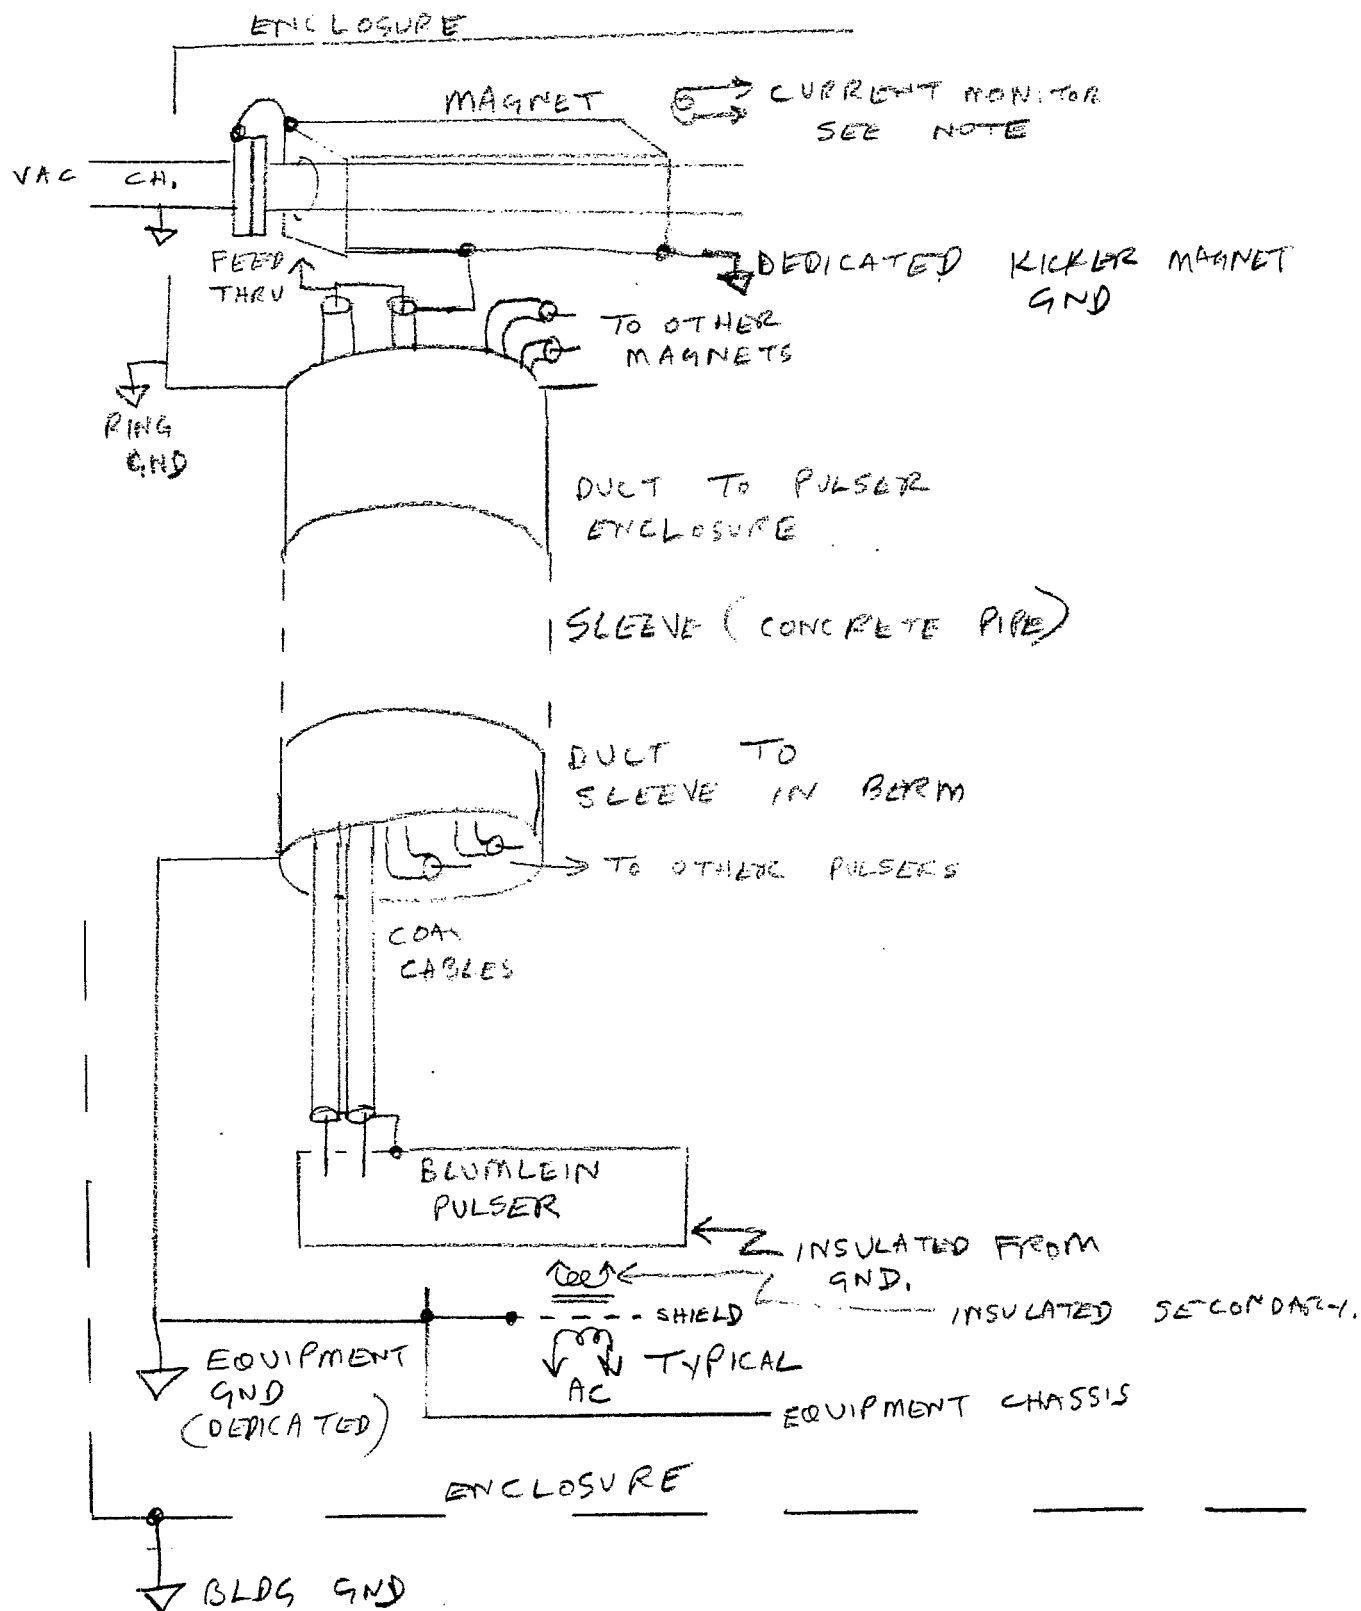 ENCLOSURE
MAGNET
CURRENT MONITOR
SEE NOTE
VAC CH.
FEED
THRU
DEDICATED KICKER MAGNET
GND
TO OTHER
MAGNETS
RING
GND
DUCT TO PULSER
ENCLOSURE
SLEEVE (CONCRETE PIPE)
DUCT TO
SLEEVE IN BERM
TO OTHER PULSERS
COAX
CABLES
BLUMLEIN
PULSER
INSULATED FROM
GND.
SHIELD
INSULATED SECONDARY.
TYPICAL
AC
EQUIPMENT
GND
(DEDICATED)
EQUIPMENT CHASSIS
ENCLOSURE
BLDG GND